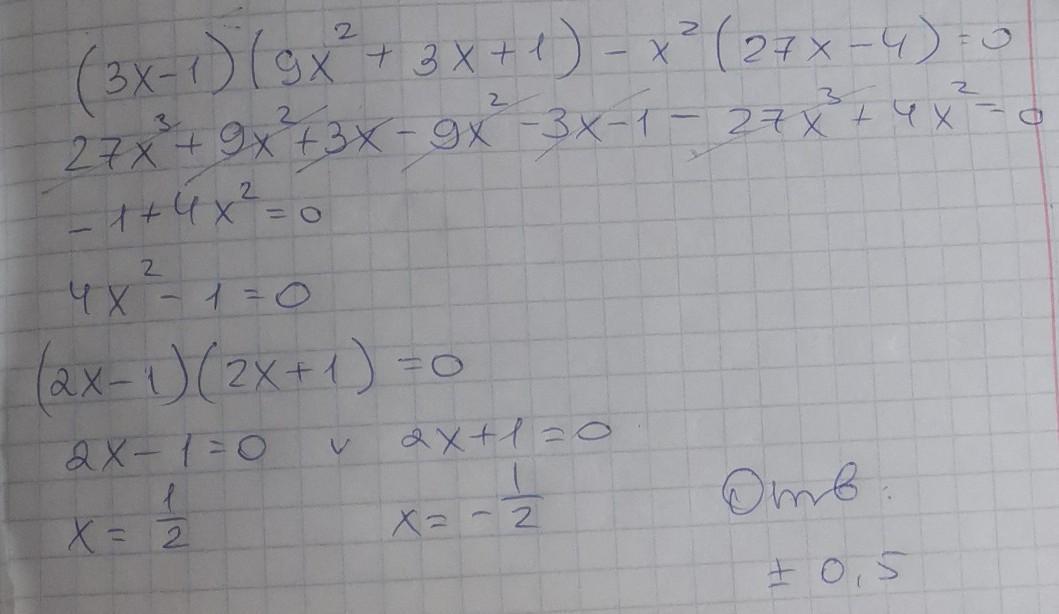 (3x-1)(9x² + 3x+1) - x²(27x-4)=0
27x³+9x²+3x-9x²-3x-1-27x³+4x²=0
-1+4x²=0
4x²-1=0
(2x-1)(2x+1)=0
2x-1=0 v 2x+1=0
x= 1/2 x=- 1/2
Отв:
± 0,5